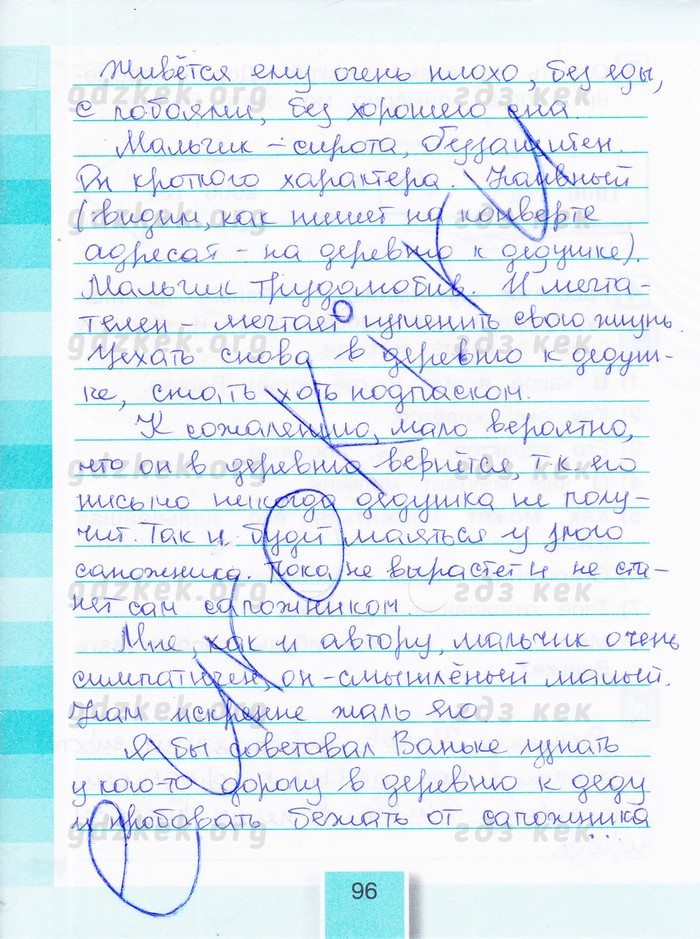 Живётся ему очень плохо, без еды,
с побоями, без хорошего сна.
Мальчик - сирота, беззащитен.
Он кроткого характера. Наивный
(видим, как пишет на конверте
адресат - на деревню к дедушке).
Мальчик трудолюбив. И мечта-
телен - мечтает изменить свою жизнь.
Уехать снова в деревню к дедуш-
ке, стать хоть подпаском.
К сожалению, мало вероятно,
что он в деревню вернётся, т.к. его
письмо никогда дедушка не полу-
чит. Так и будет маяться у злого
сапожника. Пока не вырастет и не ста-
нет сам сапожником.
Мне, как и автору, мальчик очень
симпатичен, он - смышлёный малый.
Нам искренне жаль его
Я бы советовал Ваньке узнать
у кого-то дорогу в деревню к деду
и пробовать бежать от сапожника
...
gdzkek.org гдз кек
gdzkek.org гдз кек
gdzkek.org гдз кек
gdzkek.org гдз кек
gdzkek.org гдз кек
gdzkek.org гдз кек
gdzkek.org гдз кек
96